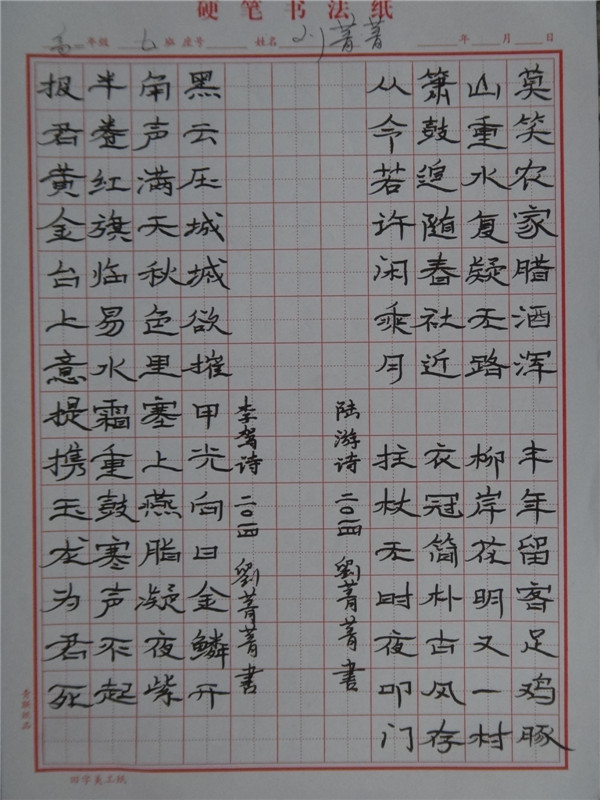 硬笔书法纸
高一年级 七班 座号 姓名 刘菁菁 年 月 日
莫笑农家腊酒浑 丰年留客足鸡豚
山重水复凝无路 柳岸花明又一村
箫鼓追随春社近 衣冠简朴古风存
从今若许闲乘月 拄杖无时夜叩门
陆游诗 二〇一四 劉菁菁 書
黑云压城城欲摧 甲光向日金鳞开
角声满天秋色里 塞上燕脂凝夜紫
半卷红旗临易水 霜重鼓寒声不起
报君黄金台上意 提携玉龙为君死
李贺诗 二〇一四 劉菁菁 書